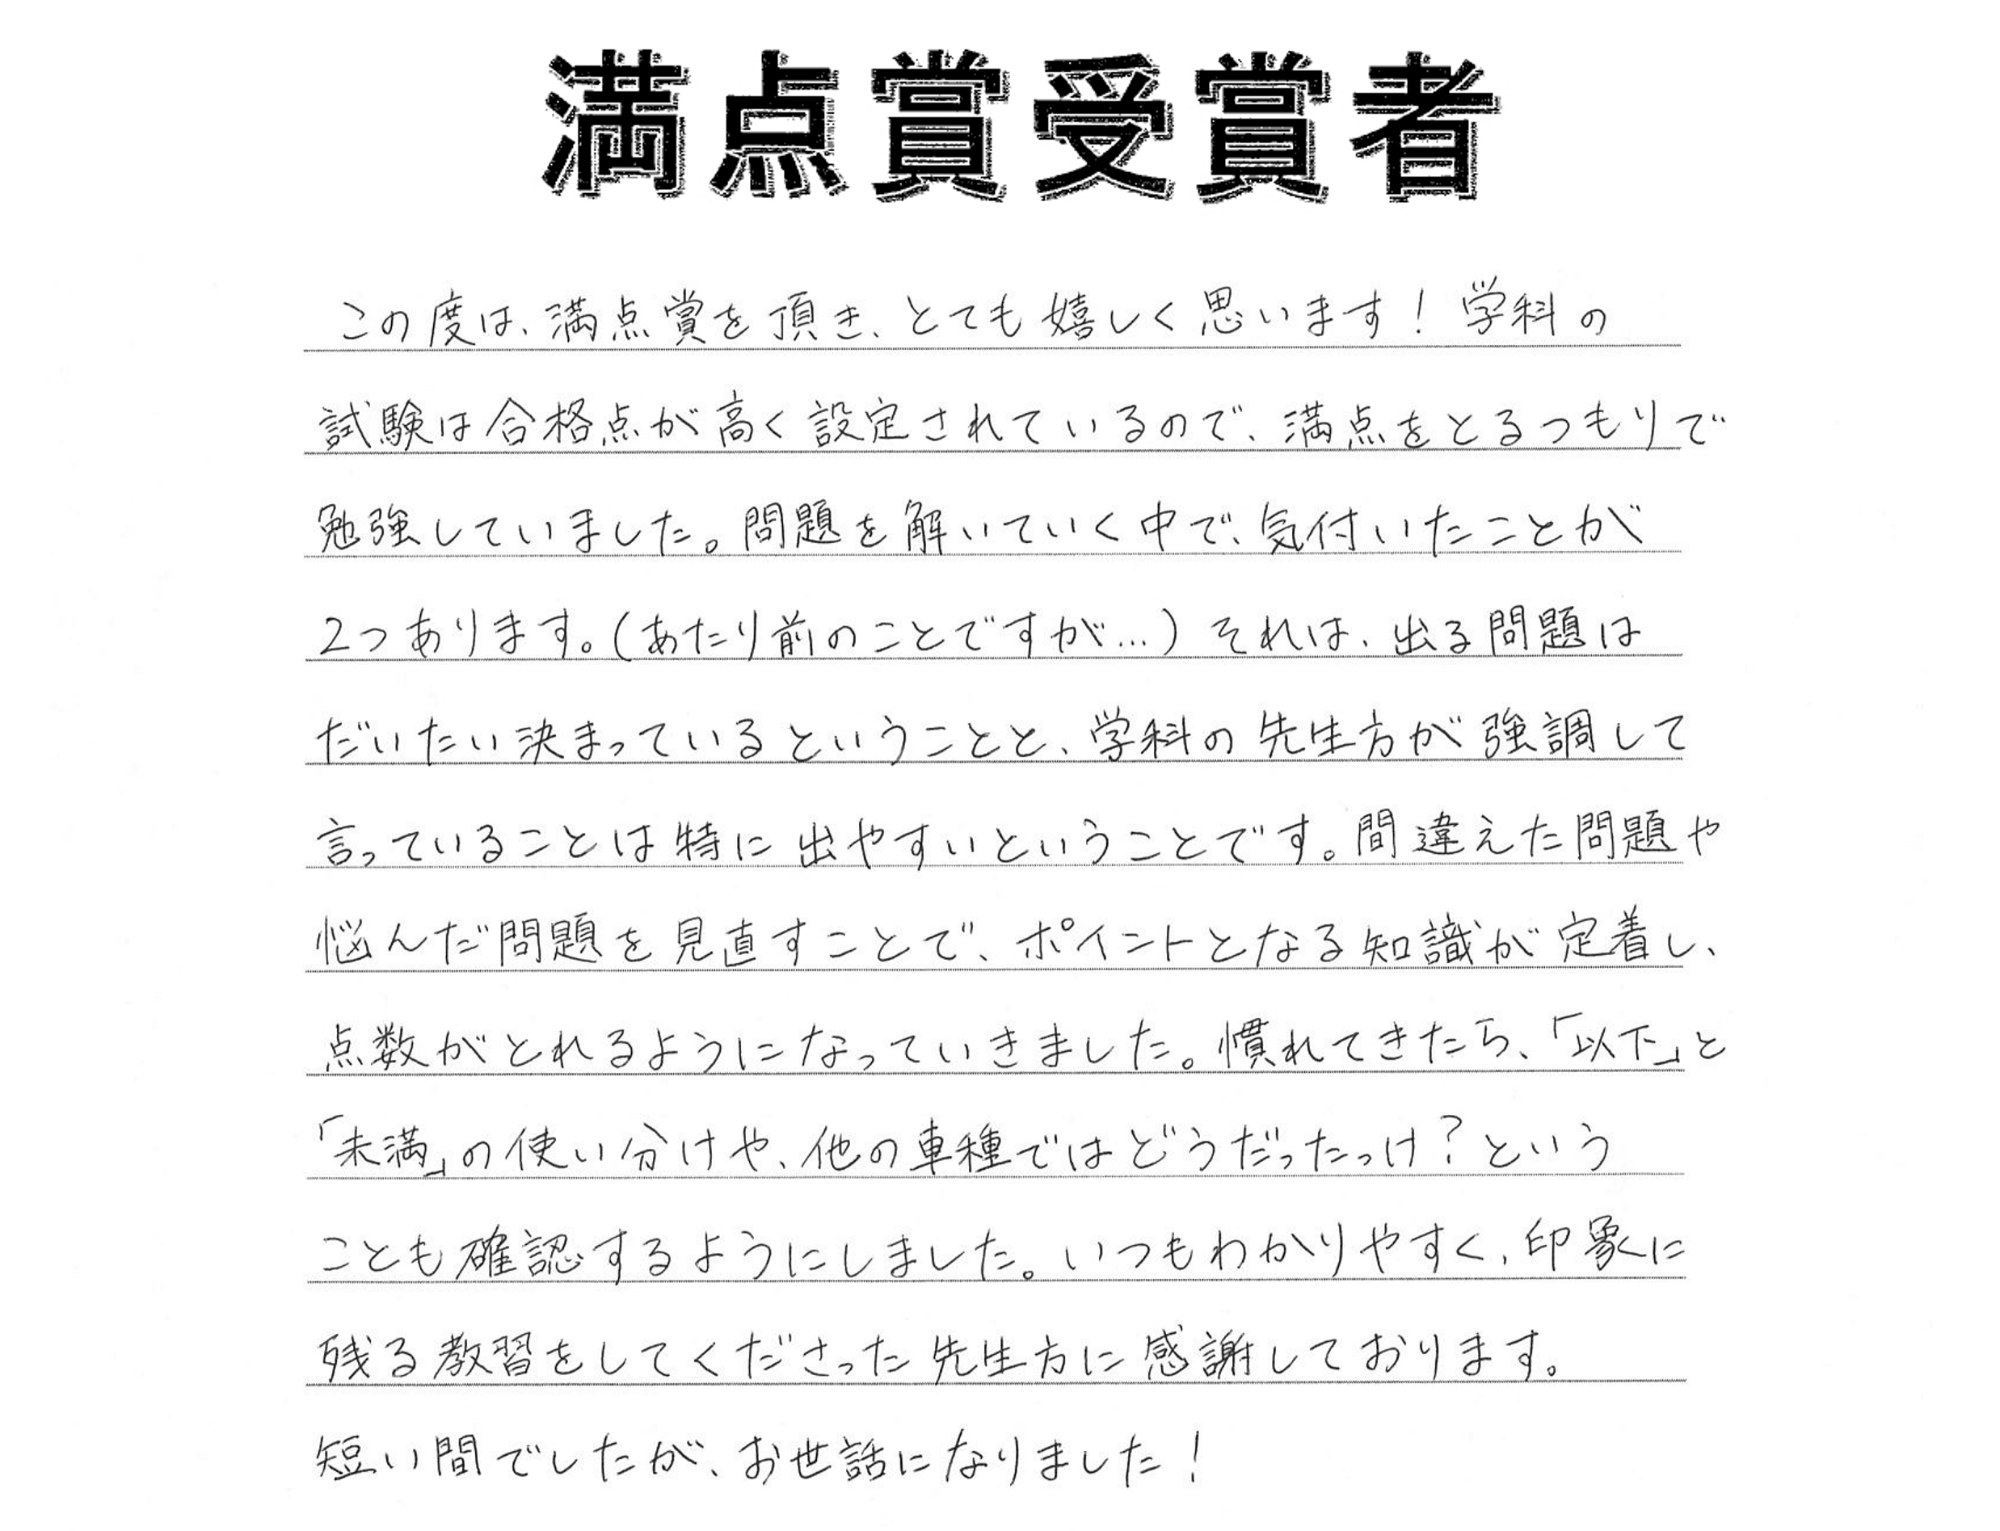 満点賞受賞者
この度は、満点賞を頂き、とても嬉しく思います！学科の
試験は合格点が高く設定されているので、満点をとるつもりで
勉強していました。問題を解いていく中で、気付いたことが
2つあります。(あたり前のことですが…)それは、出る問題は
だいたい決まっているということと、学科の先生方が強調して
言っていることは特に出やすいということです。間違えた問題や
悩んだ問題を見直すことで、ポイントとなる知識が定着し、
点数がとれるようになっていきました。慣れてきたら、「以下」と
「未満」の使い分けや、他の車種ではどうだったっけ？という
ことも確認するようにしました。いつもわかりやすく、印象に
残る教習をしてくださった先生方に感謝しております。
短い間でしたが、お世話になりました！